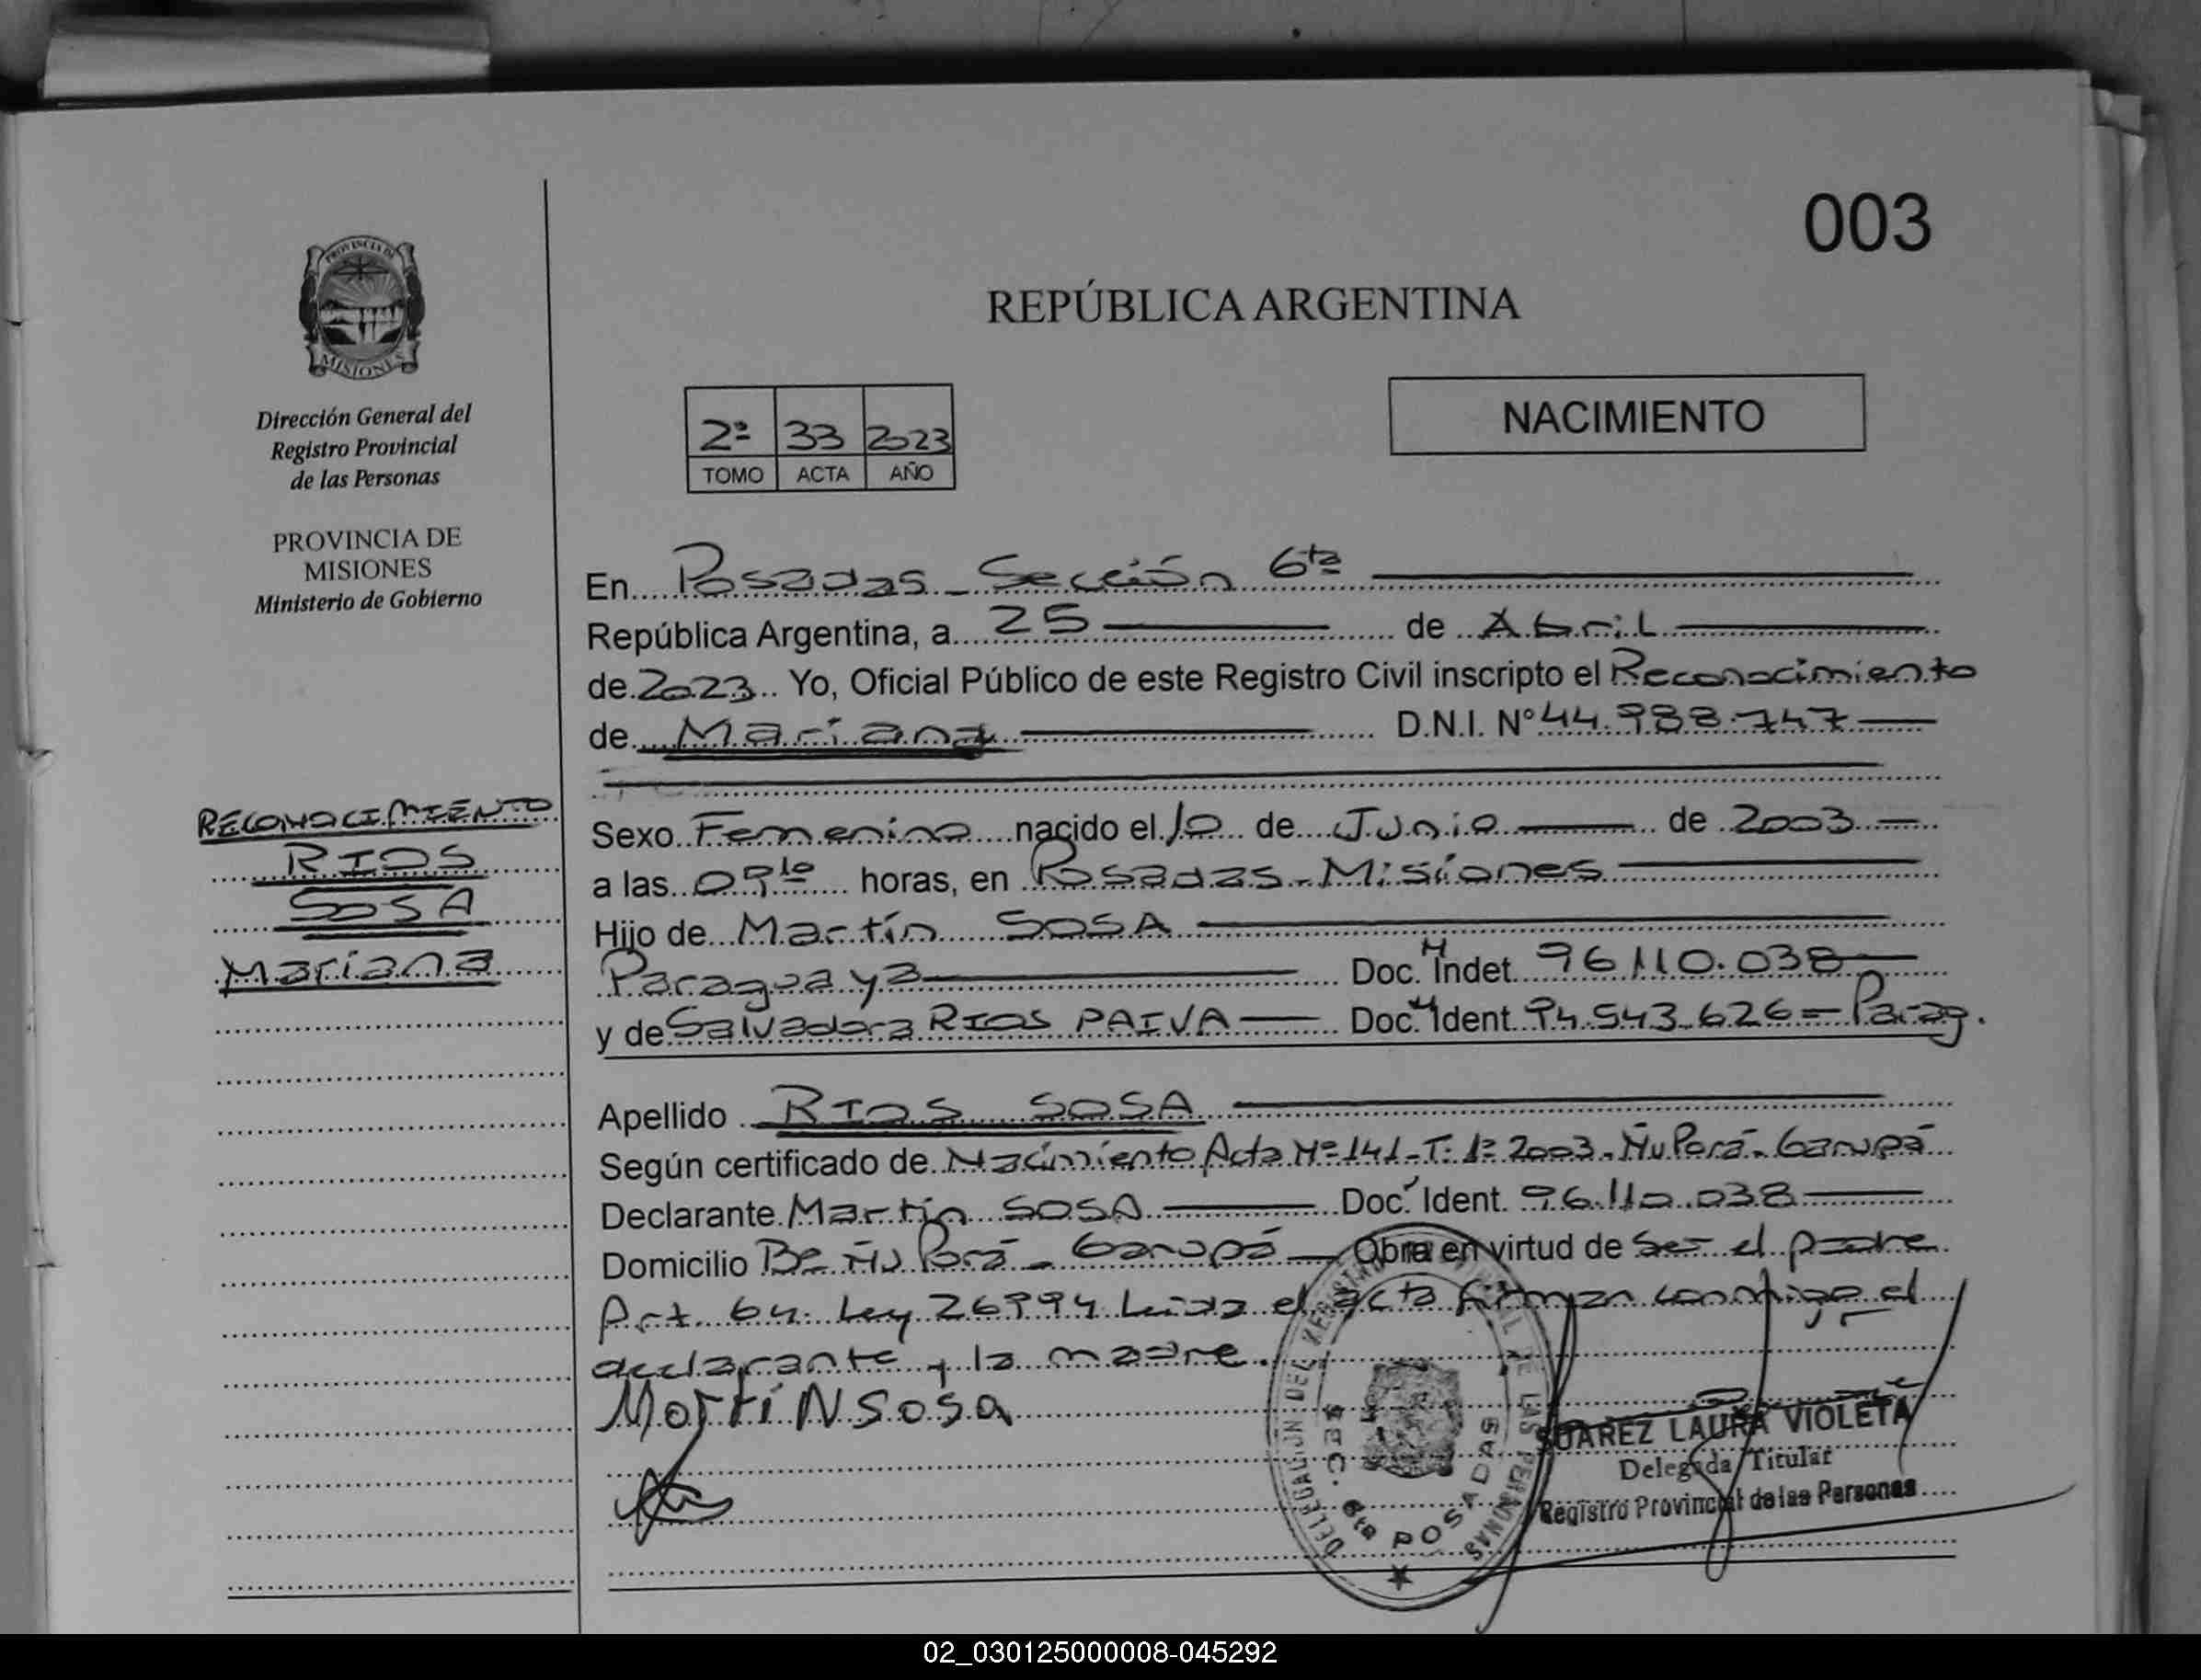 003
PROVINCIA DE
MISIONES
Dirección General del
Registro Provincial
de las Personas
PROVINCIA DE
MISIONES
Ministerio de Gobierno
RECONOCIMIENTO
RIOS
SOSA
Mariana
REPÚBLICA ARGENTINA
2º 33 2023
TOMO ACTA AÑO
NACIMIENTO
En Posadas - Sección 6ta
República Argentina, a 25 de Abril
de 2023 Yo, Oficial Público de este Registro Civil inscripto el Reconocimiento
de Mariana D.N.I. Nº 44.988.747
Sexo Femenino nacido el 10 de Junio de 2003
a las 09 10 horas, en Posadas - Misiones
Hijo de Martín SOSA
Paraguaya Doc. Nº Indet. 96.110.038
y de Salvadora RIOS PAIVA Doc. Nº Ident 94.543.626 = Parag.
Apellido RIOS SOSA
Según certificado de Nacimiento Acta Nº 141 - T: 1º 2003 - Ñu Porá - Garupá
Declarante Martín SOSA Doc. Ident. 96.110.038
Domicilio Bº Ñu Porá - Garupá Obra en virtud de ser el padre
Art. 64. Ley 26994 Leida el acta firman conmigo el
declarante y la madre.
MartiN Sosa
DELEGACIÓN DEL REGISTRO PROVINCIAL DE LAS PERSONAS
SEC. 6ta POSADAS
SUAREZ LAURA VIOLETA
Delegada Titular
Registro Provincial de las Personas
02_030125000008-045292